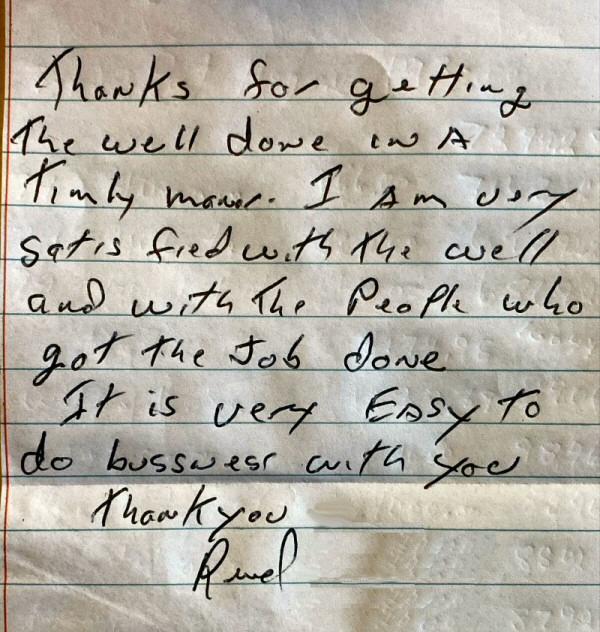 Thanks for getting
The well done in A
timly manor. I Am very
satisfied with the well
and with The People who
got the Job done
It is very EASy to
do bussness with you
thank you